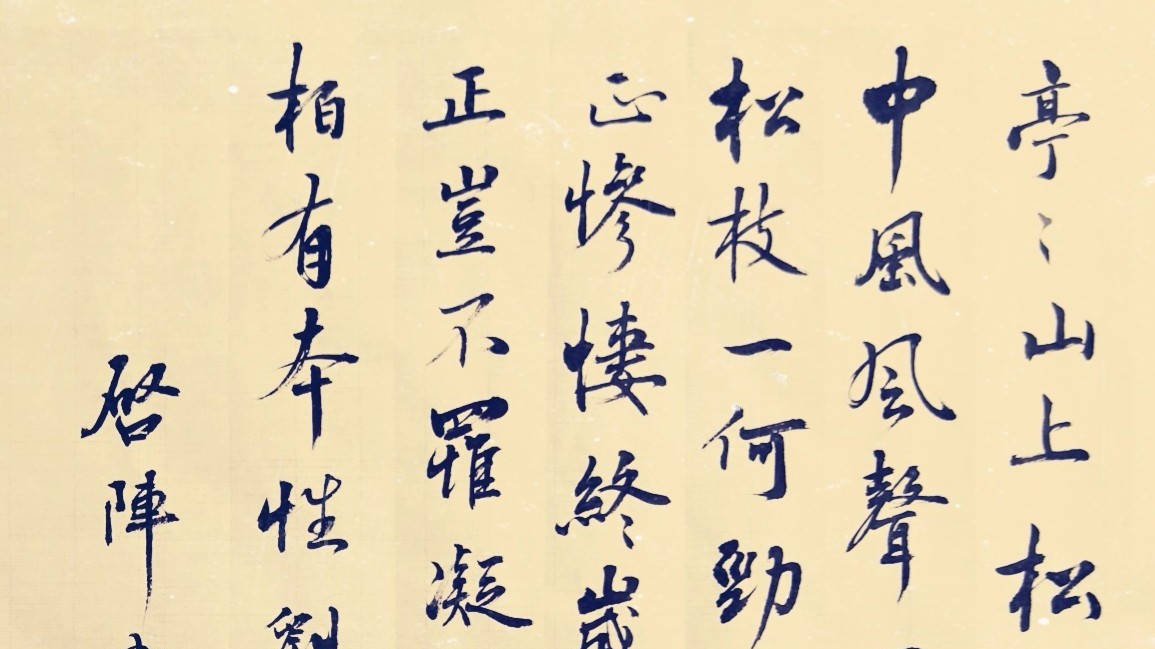 亭〻山上松
中風風聲
松枝一何勁
正慘悽終歲
正豈不罹凝
柏有本性劉
啓陣